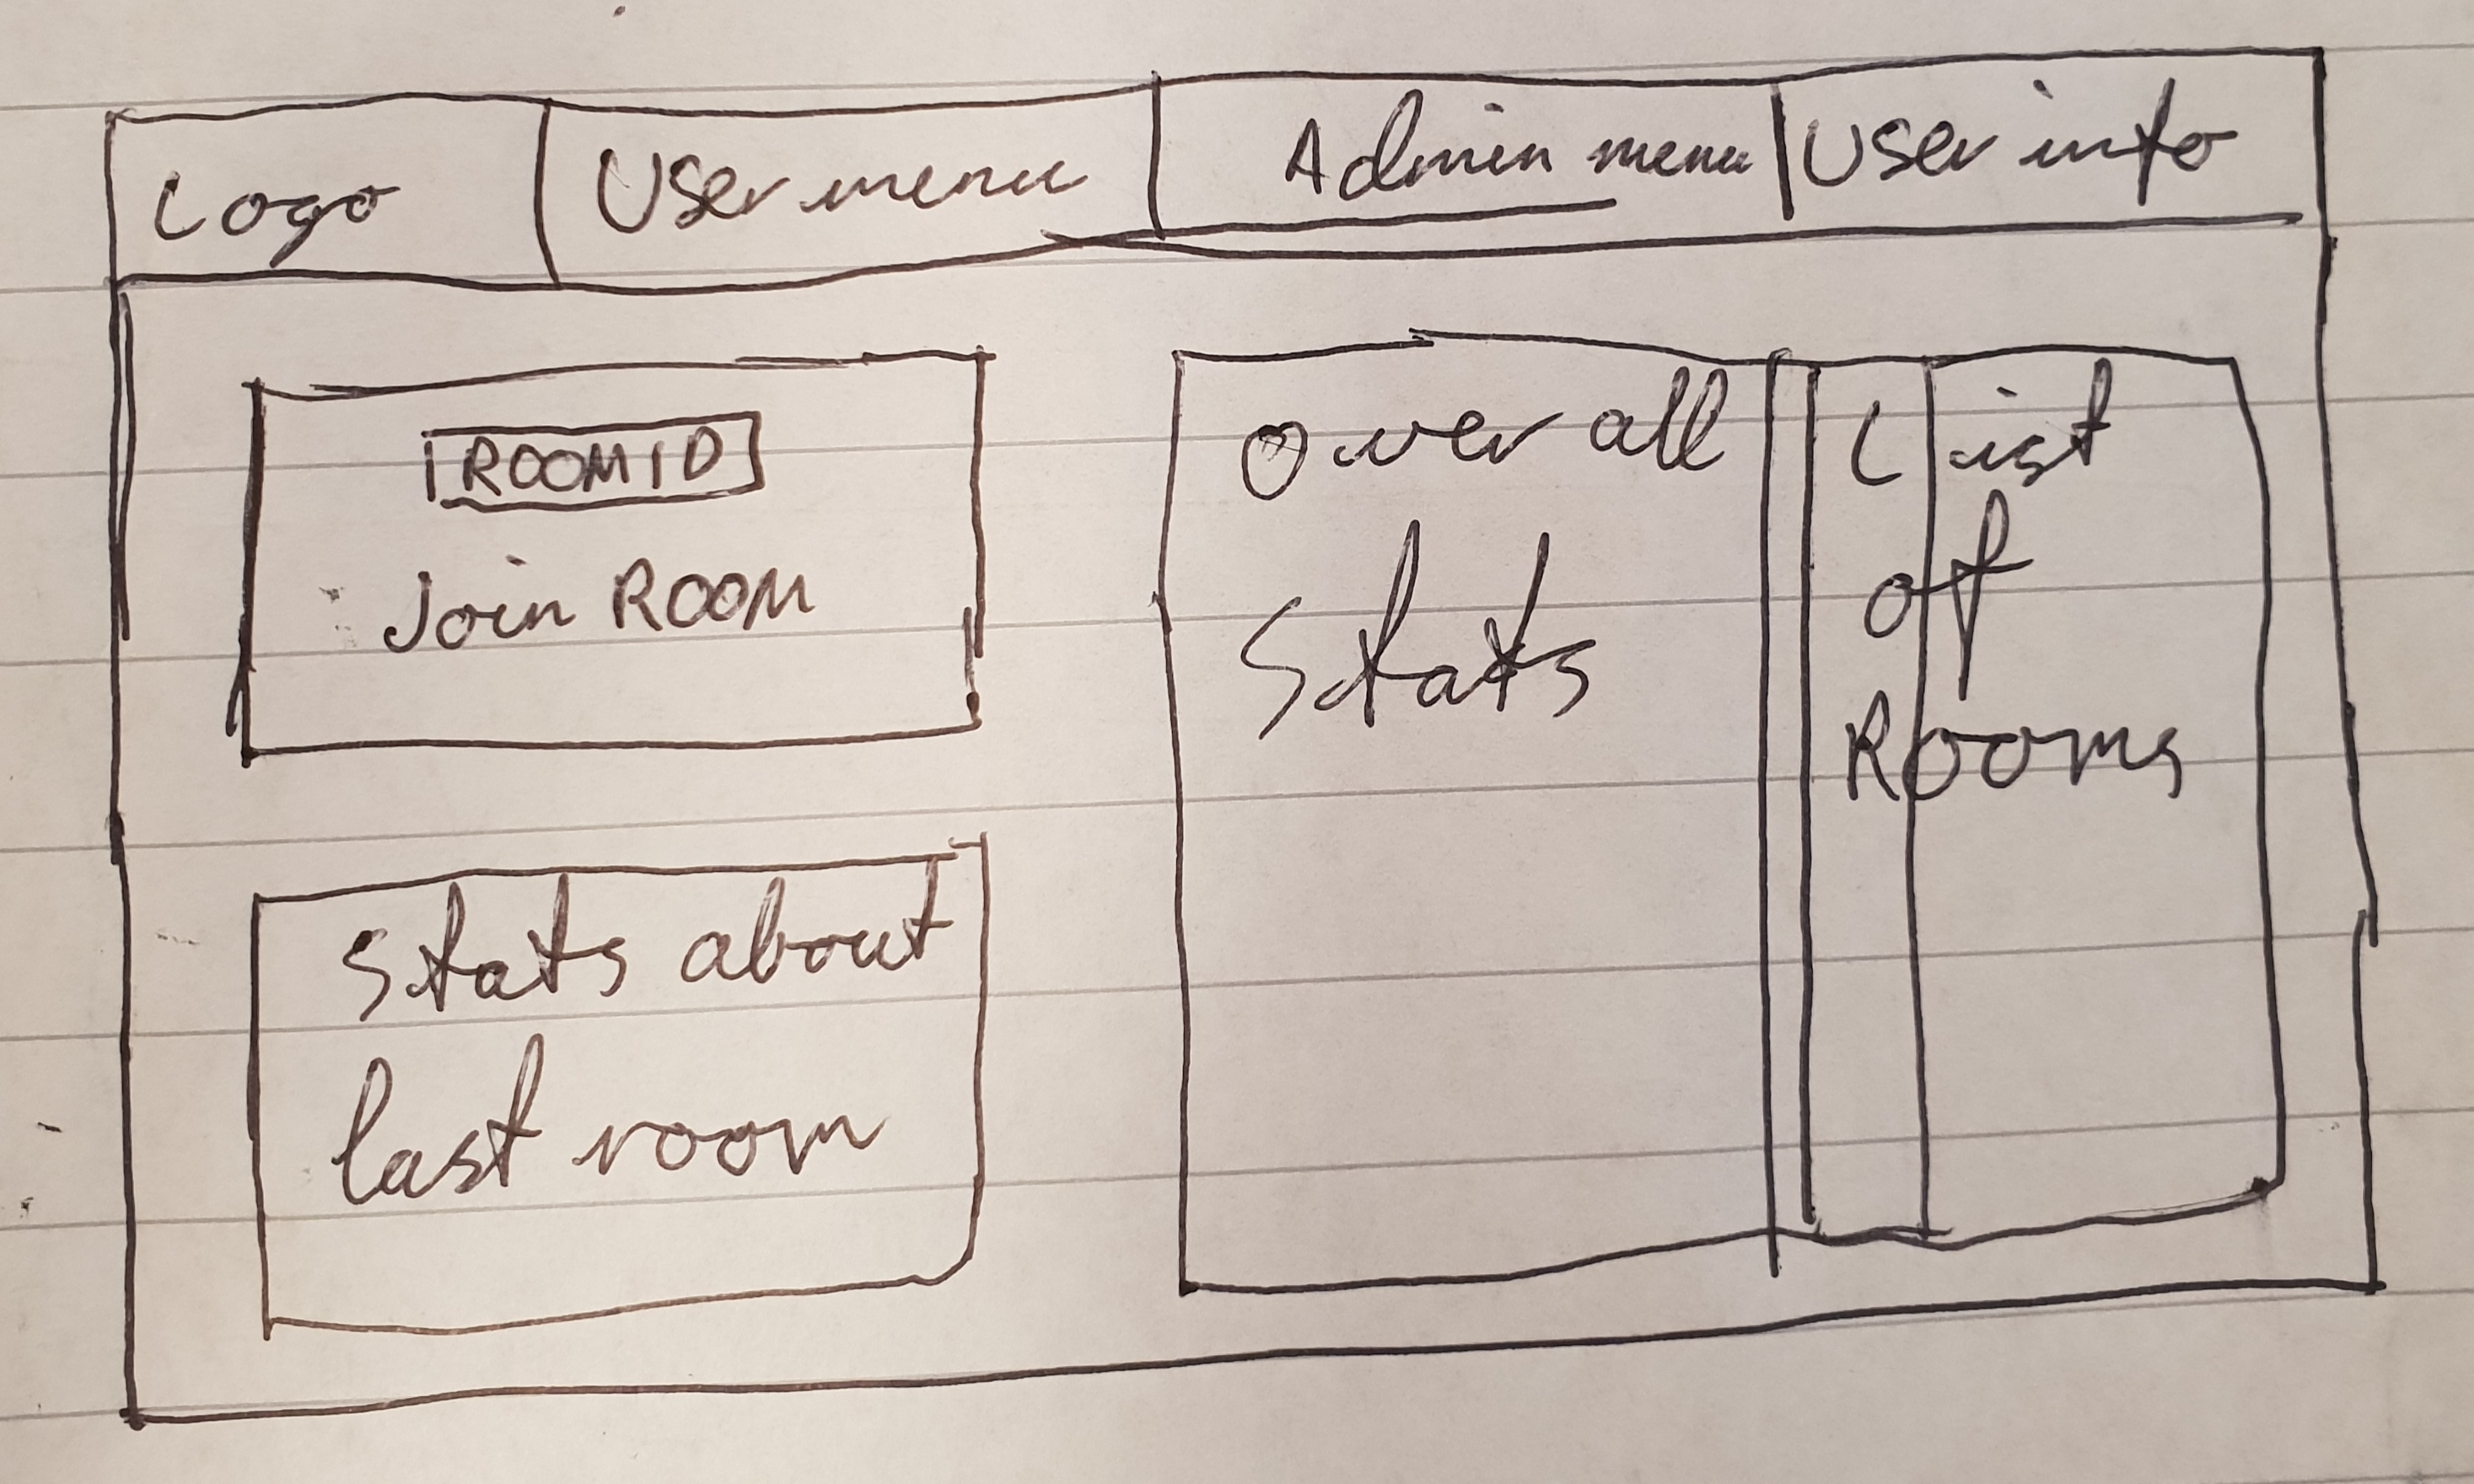 Logo
User menu
Admin menu
User info
ROOM ID
Join ROOM
Stats about
last room
Over all
Stats
List
of
Rooms